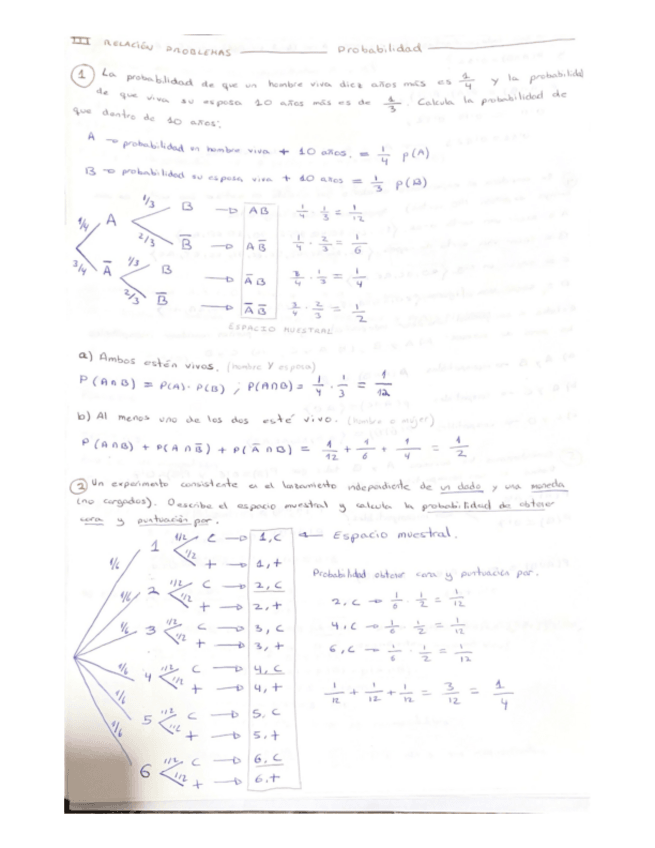 III RELACIÓN PROBLEMAS Probabilidad
1 La probabilidad de que un hombre viva diez años más es 1/4 y la probabilidad
de que viva su esposa 10 años más es de 1/3. Calcula la probabilidad de
que dentro de 10 años:
A → probabilidad un hombre viva + 10 años. = 1/4 p(A)
B → probabilidad su esposa viva + 10 años = 1/3 p(B)
1/4 A 1/3 B → AB 1/4 · 1/3 = 1/12
2/3 B̅ → AB̅ 1/4 · 2/3 = 1/6
3/4 A̅ 1/3 B → A̅B 3/4 · 1/3 = 1/4
2/3 B̅ → A̅B̅ 3/4 · 2/3 = 1/2
ESPACIO MUESTRAL
a) Ambos estén vivos. (hombre Y esposa)
P(A∩B) = P(A)·P(B) ; P(A∩B) = 1/4 · 1/3 = 1/12
b) Al menos uno de los dos esté vivo. (hombre o mujer)
P(A∩B) + P(A∩B̅) + P(A̅∩B) = 1/12 + 1/6 + 1/4 = 1/2
2 Un experimento consistente en el lanzamiento independiente de un dado y una moneda
(no cargados). Describe el espacio muestral y calcula la probabilidad de obtener
cara y puntuación par.
1/6 1 1/2 C → 1,C ← Espacio muestral.
1/2 + → 1,+
1/6 2 1/2 C → 2,C
1/2 + → 2,+
1/6 3 1/2 C → 3,C
1/2 + → 3,+
1/6 4 1/2 C → 4,C
1/2 + → 4,+
1/6 5 1/2 C → 5,C
1/2 + → 5,+
1/6 6 1/2 C → 6,C
1/2 + → 6,+
Probabilidad obtener cara y puntuación par.
2,C → 1/6 · 1/2 = 1/12
4,C → 1/6 · 1/2 = 1/12
6,C → 1/6 · 1/2 = 1/12
1/12 + 1/12 + 1/12 = 3/12 = 1/4